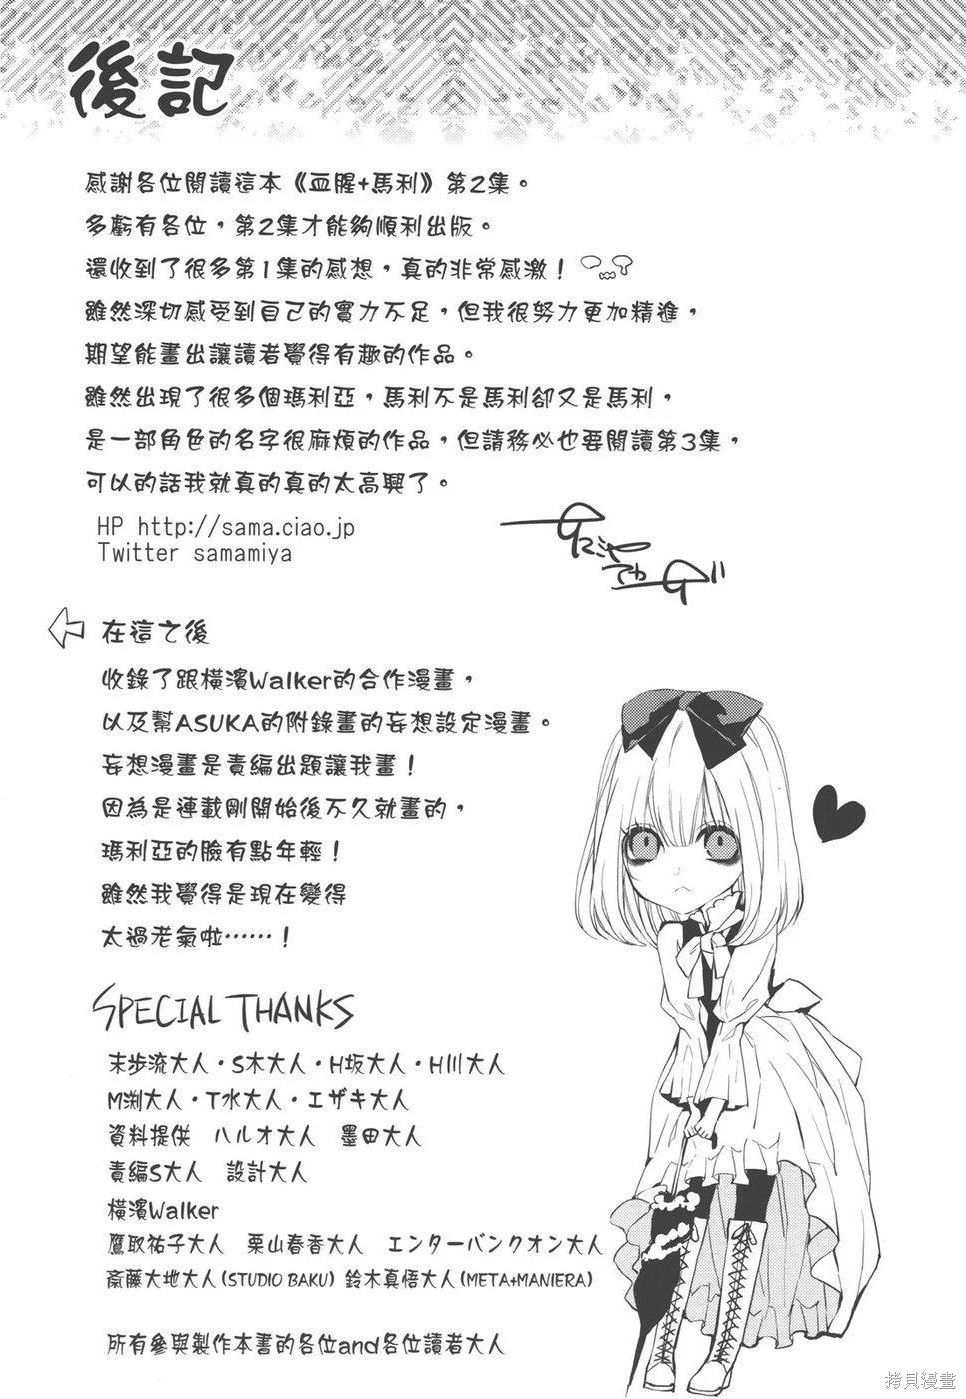 後記
感謝各位閱讀這本《血腥+馬利》第2集。
多虧有各位，第2集才能夠順利出版。
還收到了很多第1集的感想，真的非常感激！
雖然深切感受到自己的實力不足，但我很努力更加精進，
期望能畫出讓讀者覺得有趣的作品。
雖然出現了很多個瑪利亞，馬利不是馬利卻又是馬利，
是一部角色的名字很麻煩的作品，但請務必也要閱讀第3集，
可以的話我就真的真的太高興了。
HP http://sama.ciao.jp
Twitter samamiya
在這之後
收錄了跟橫濱Walker的合作漫畫，
以及幫ASUKA的附錄畫的妄想設定漫畫。
妄想漫畫是責編出題讓我畫！
因為是連載剛開始後不久就畫的，
瑪利亞的臉有點年輕！
雖然我覺得是現在變得
太過老氣啦……！
SPECIAL THANKS
末步流大人・S木大人・H坂大人・H川大人
M渕大人・T水大人・エザキ大人
資料提供　ハルオ大人　墨田大人
責編S大人　設計大人
橫濱Walker
鷹取祐子大人　栗山春香大人　エンターバンクオン大人
斎藤大地大人(STUDIO BAKU) 鈴木真悟大人(META+MANIERA)
所有參與製作本書的各位and各位讀者大人
拷貝漫畫